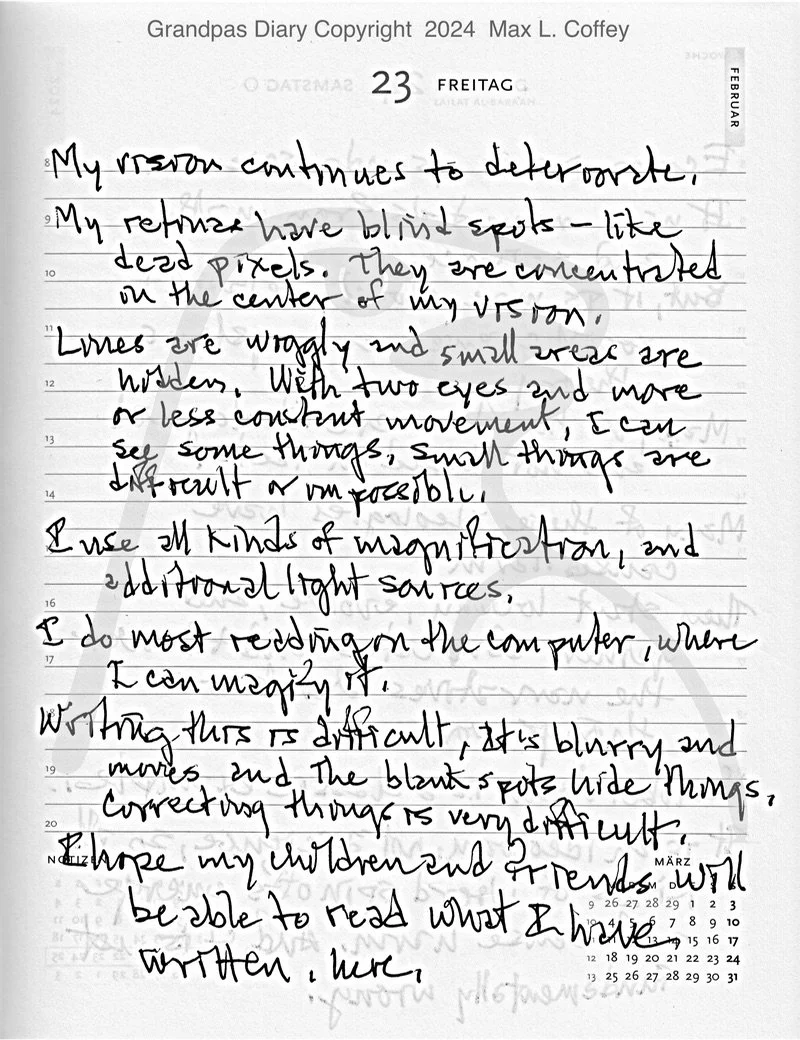 Grandpas Diary Copyright 2024 Max L. Coffey
23 FREITAG
FEBRUAR
8 My vision continues to deteriorate.
9 My retinas have blind spots – like
10 dead pixels. They are concentrated
in the center of my vision.
11 Lines are wiggly and small areas are
12 hidden. With two eyes and more
or less constant movement, I can
13 see some things, small things are
14 difficult or impossible.
I use all kinds of magnification, and
additional light sources.
16
I do most reading on the computer, where
17 I can magify it.
Writing this is difficult, it's blurry and
19 moves and the blank spots hide things,
Correcting things is very difficult.
20
NOTIZEN I hope my children and friends will
be able to read what I have
written, here.
MÄRZ
9 26 27 28 29 1 2 3
10 4 5 6 7 8 9 10
13 14 15 16 17
12 18 19 20 21 22 23 24
13 25 26 27 28 29 30 31